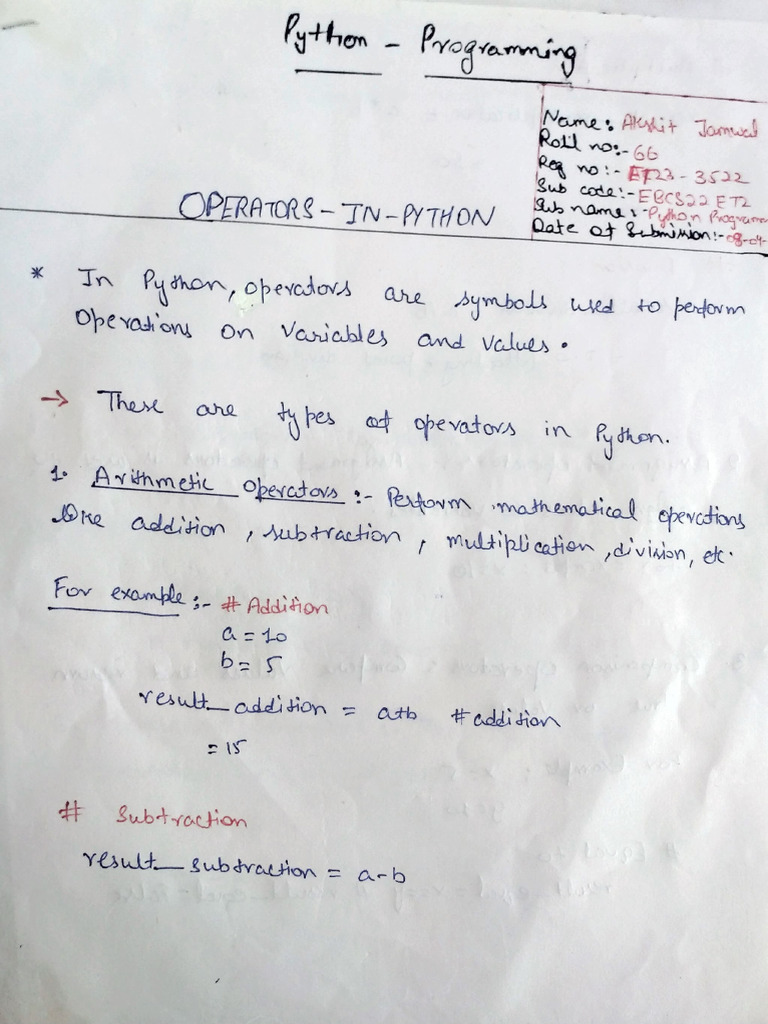 Python - Programming
Name: Akshit Jamwal
Roll no:- 66
Reg no:- ET23-3522
Sub code:- EBCS22ET2
Sub name:- Python Programm
Date of Submission:- 08-04-
OPERATORS-IN-PYTHON
* In Python, operators are symbols used to perform
Operations on variables and values.
→ These are types of operators in Python.
1. Arithmetic Operators :- Perform mathematical operations
like addition, subtraction, multiplication, division, etc.
For example :- # Addition
a = 10
b = 5
result_addition = a+b #addition
= 15
# Subtraction
result_subtraction = a-b